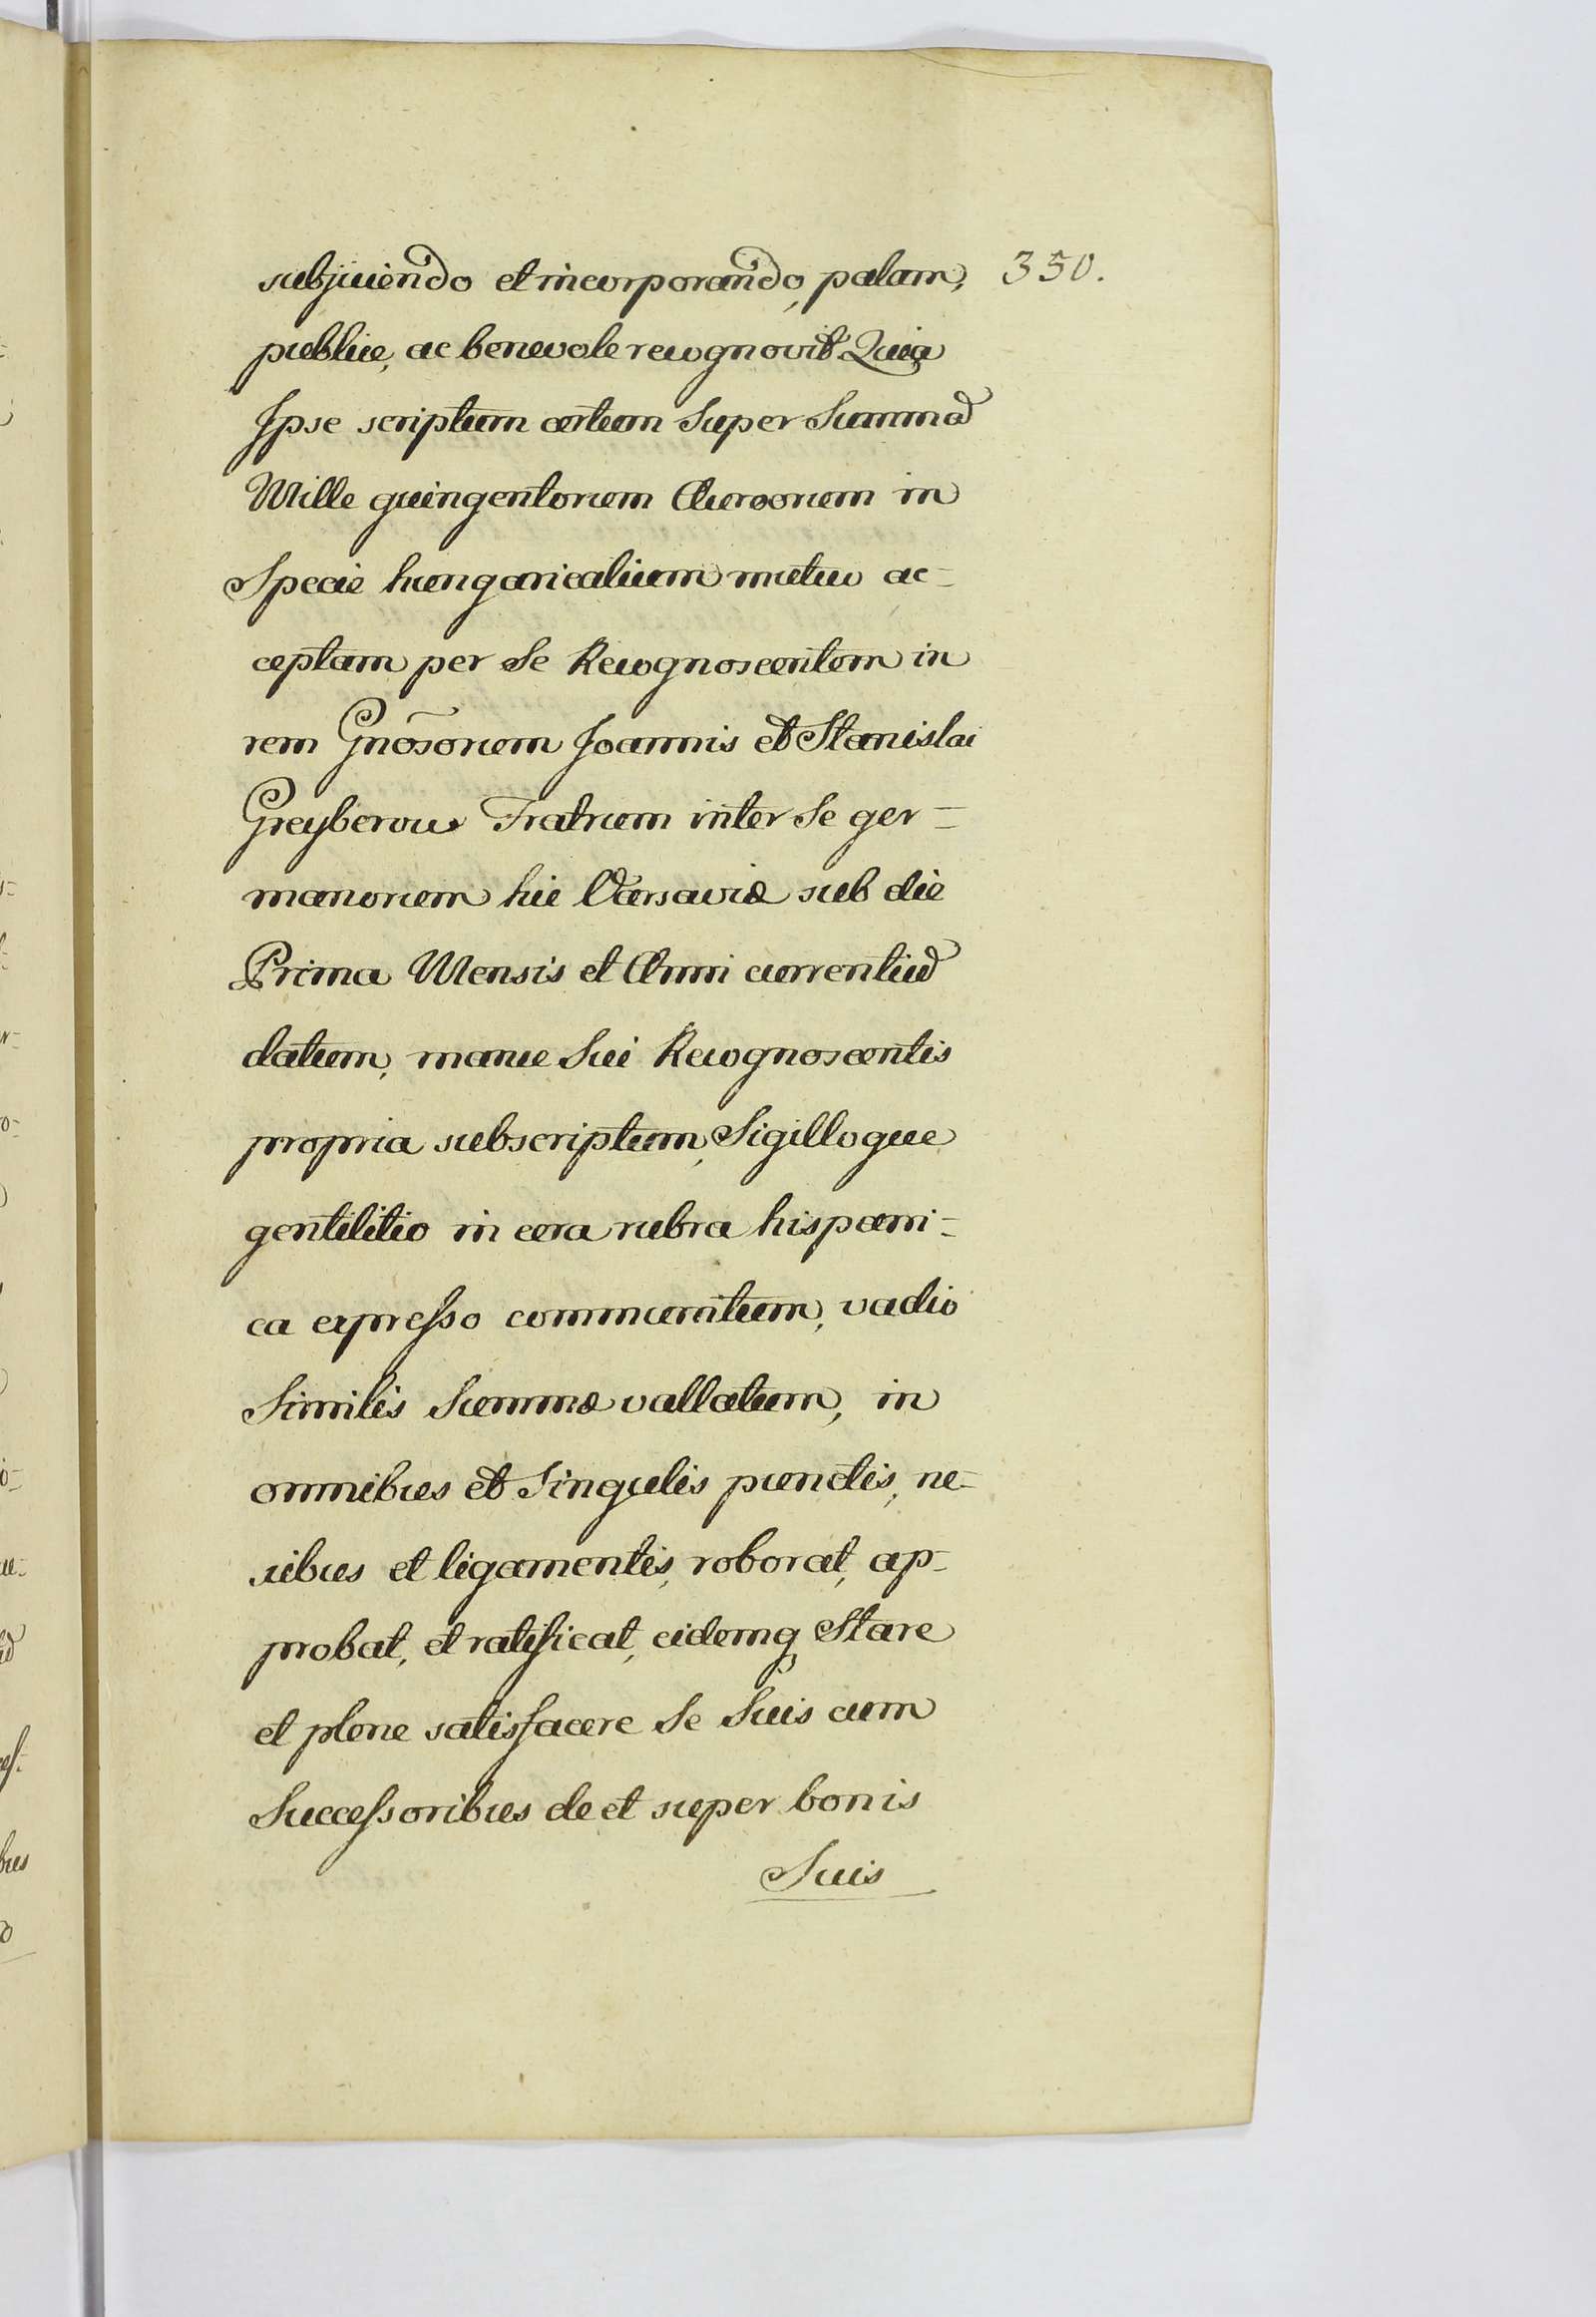 subjiciendo et incorporando, palam, 350.
publice, ac benevole recognovit Quia
Ipse scriptum certum Super Summa
Mille quingentorum Aureorum in
Specie hungaricalium mutuo ac-
ceptam per Se Recognoscentem in
rem Gnõsorum Joannis et Stanislai
Greyberow Fratrum inter Se ger-
manorum hic Varsaviæ sub die
Prima Mensis et Anni currentium
datum, manu Sui Recognoscentis
propria subscriptum, Sigilloque
gentilitio in cera rubra hispani-
ca expresso communitum, vadio
Similis Summæ vallatum, in
omnibus et Singulis punctis, ne-
xibus et ligamentis, roborat, ap-
probat, et ratificat, eidemq Stare
et plene satisfacere Se Suis cum
Successoribus de et super bonis
Suis